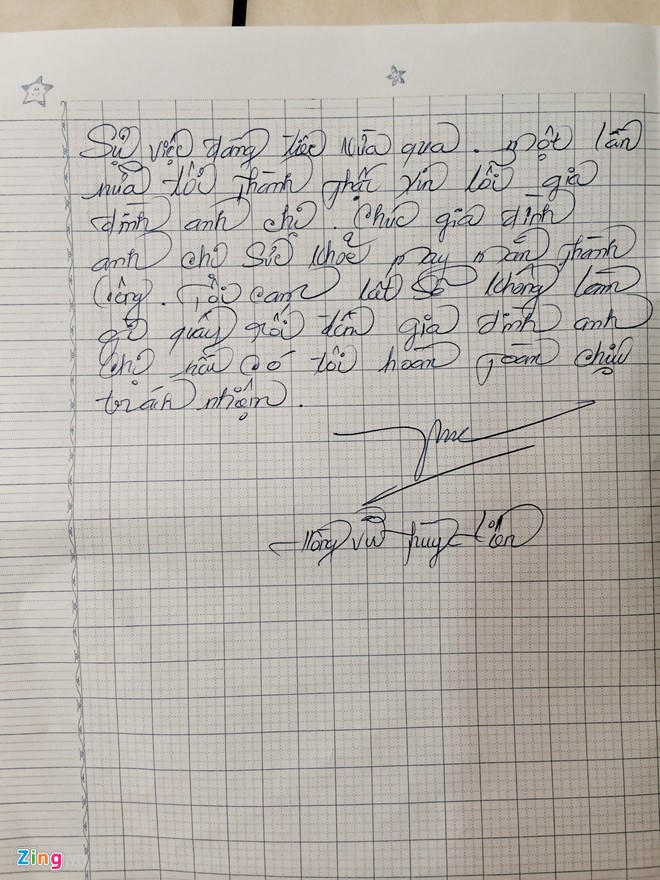 Sự việc đáng tiếc vừa qua. Một lần
nữa tôi thành thật xin lỗi gia
đình anh chị. Chúc gia đình
anh chị sức khoẻ may mắn thành
công. Tôi cam kết sẽ không làm
gì quấy rối đến gia đình anh
chị nếu có tôi hoàn toàn chịu
trách nhiệm.
vũ huy
Zing